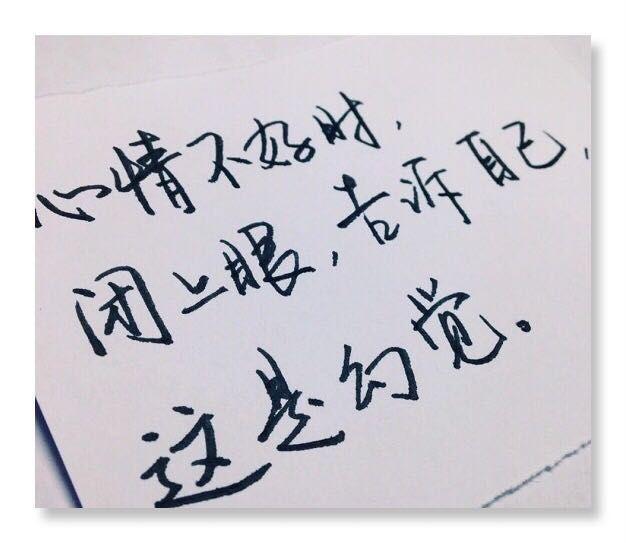 心情不好时，
闭上眼，告诉自己，
这是幻觉。